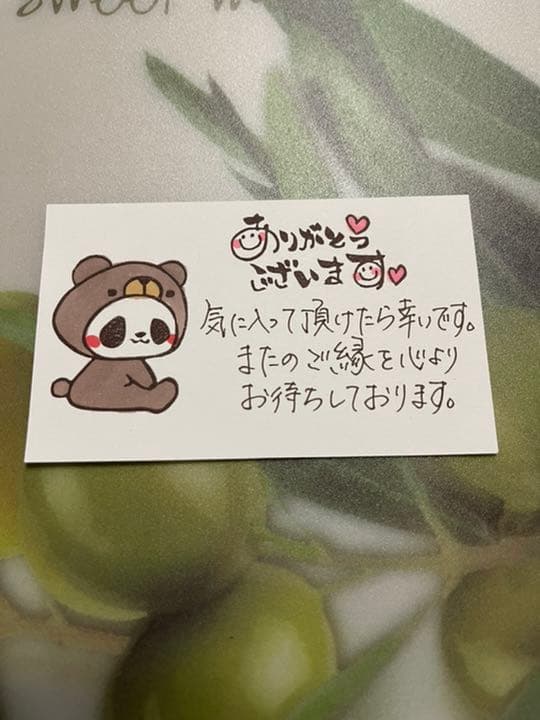 sweet
ありがとう
ございます
気に入って頂けたら幸いです。
またのご縁を心より
お待ちしております。